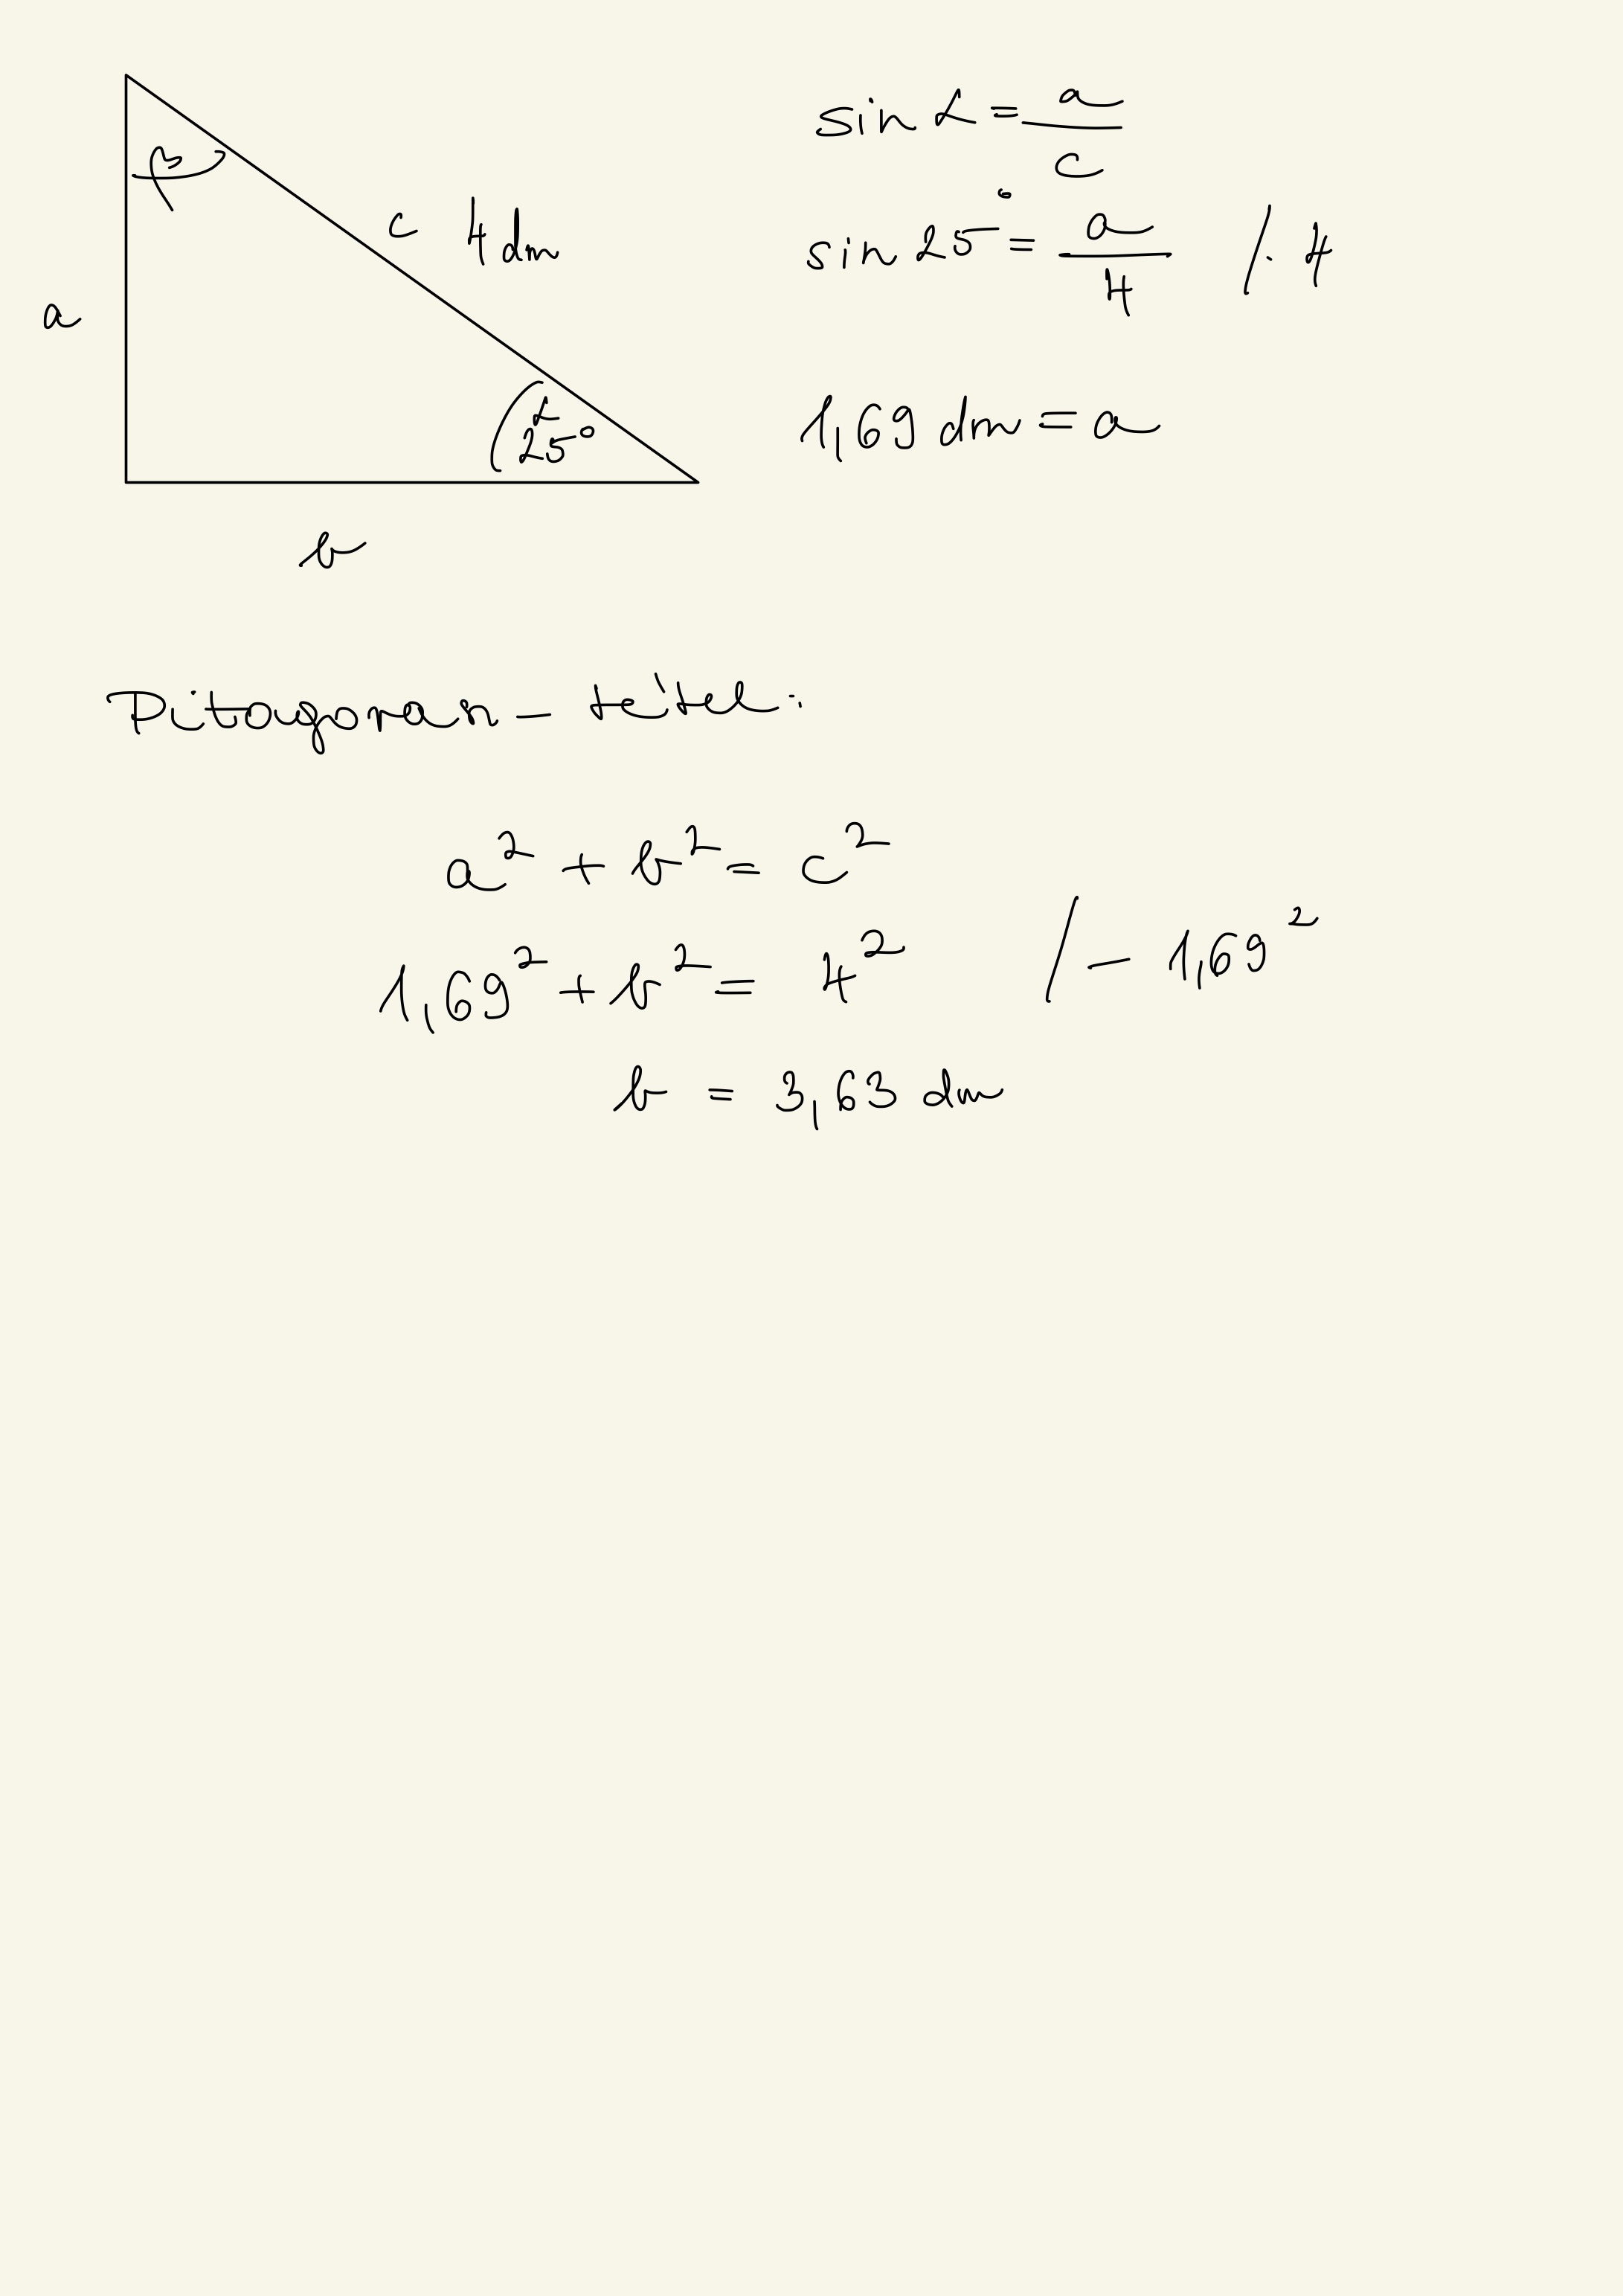 β
c 4 dm
a
α
25°
b
sin α = a/c
sin 25° = a/4 / · 4
1,69 dm = a
Pitagoras-tétel:
a² + b² = c²
1,69² + b² = 4² / - 1,69²
b = 3,63 dm